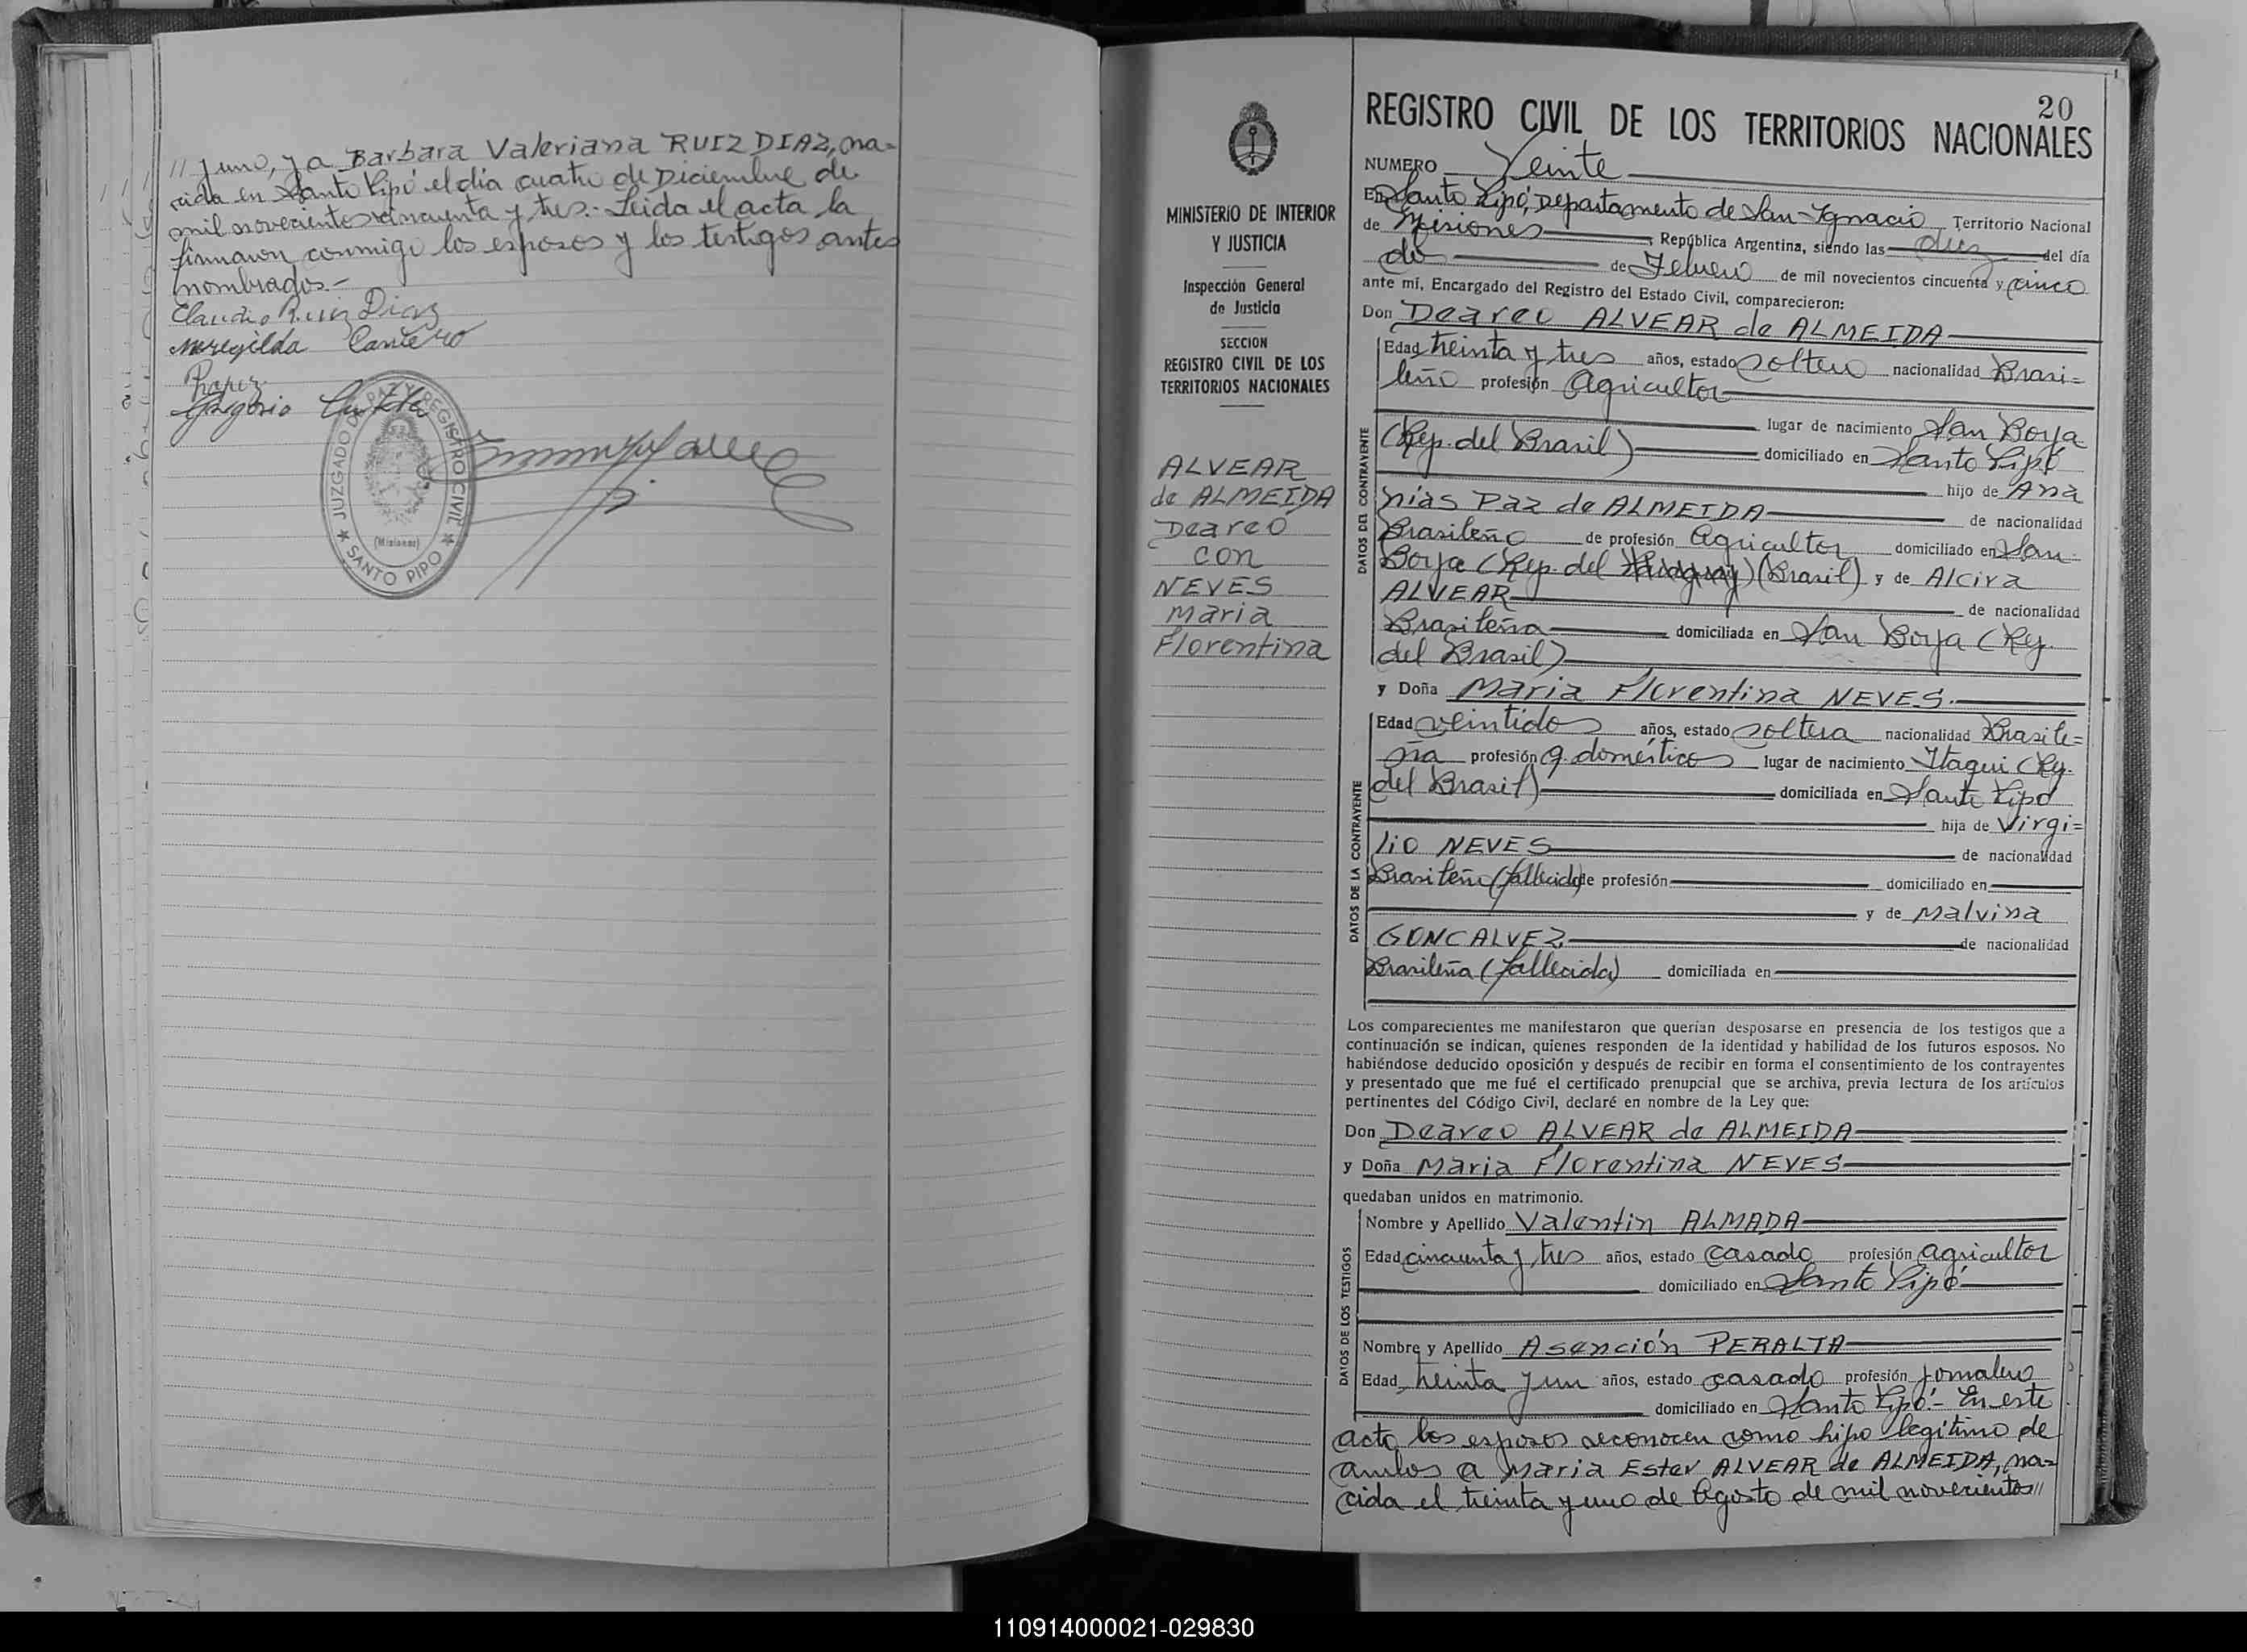 // y uno, y a Barbara Valeriana RUIZ DIAZ, na=
cida en Santo Pipó el día cuatro de Diciembre de
mil novecientos cincuenta y tres.- Leida el acta la
firmaron conmigo los esposos y los testigos antes
nombrados.-
Claudio Ruiz Diaz
Meregilda Cantero
Gregorio
JUZGADO DE PAZ Y REGISTRO CIVIL
(Misiones)
★ SANTO PIPO ★
MINISTERIO DE INTERIOR
Y JUSTICIA
Inspección General
de Justicia
SECCION
REGISTRO CIVIL DE LOS
TERRITORIOS NACIONALES
ALVEAR
de ALMEIDA
Deareo
con
NEVES
Maria
Florentina
20
REGISTRO CIVIL DE LOS TERRITORIOS NACIONALES
NUMERO Veinte
En Santo Pipó, Departamento de San Ignacio Territorio Nacional
de Misiones, República Argentina, siendo las diez del día
dos de Febrero de mil novecientos cincuenta y cinco
ante mí, Encargado del Registro del Estado Civil, comparecieron:
Don Deareo ALVEAR de ALMEIDA
DATOS DEL CONTRAYENTE
Edad treinta y tres años, estado soltero nacionalidad Brasi=
leño profesión Agricultor
lugar de nacimiento San Borja
(Rep. del Brasil) domiciliado en Santo Pipó
hijo de Ana
nias Paz de ALMEIDA de nacionalidad
Brasileño de profesión Agricultor domiciliado en San
Borja (Rep. del Paraguay) (Brasil) y de Alcira
ALVEAR de nacionalidad
Brasileña domiciliada en San Borja (Rep.
del Brasil)
y Doña Maria Florentina NEVES.
DATOS DE LA CONTRAYENTE
Edad veintidos años, estado soltera nacionalidad Brasile=
ña profesión q. domésticos lugar de nacimiento Itaqui (Rep.
del Brasil) domiciliada en Santo Pipó
hija de Virgi=
lio NEVES de nacionalidad
Brasileño (fallecido) de profesión domiciliado en
y de Malvina
GONCALVEZ de nacionalidad
Brasileña (fallecida) domiciliada en
Los comparecientes me manifestaron que querían desposarse en presencia de los testigos que a
continuación se indican, quienes responden de la identidad y habilidad de los futuros esposos. No
habiéndose deducido oposición y después de recibir en forma el consentimiento de los contrayentes
y presentado que me fué el certificado prenupcial que se archiva, previa lectura de los artículos
pertinentes del Código Civil, declaré en nombre de la Ley que:
Don Deareo ALVEAR de ALMEIDA
y Doña Maria Florentina NEVES
quedaban unidos en matrimonio.
DATOS DE LOS TESTIGOS
Nombre y Apellido Valentin ALMADA
Edad cincuenta y tres años, estado casado profesión agricultor
domiciliado en Santo Pipó
Nombre y Apellido Asención PERALTA
Edad treinta y un años, estado casado profesión jornalero
domiciliado en Santo Pipó.- En este
acto los esposos reconocen como hijo legítimo de
ambos a Maria Ester ALVEAR de ALMEIDA, na=
cida el treinta y uno de Agosto de mil novecientos //
110914000021-029830